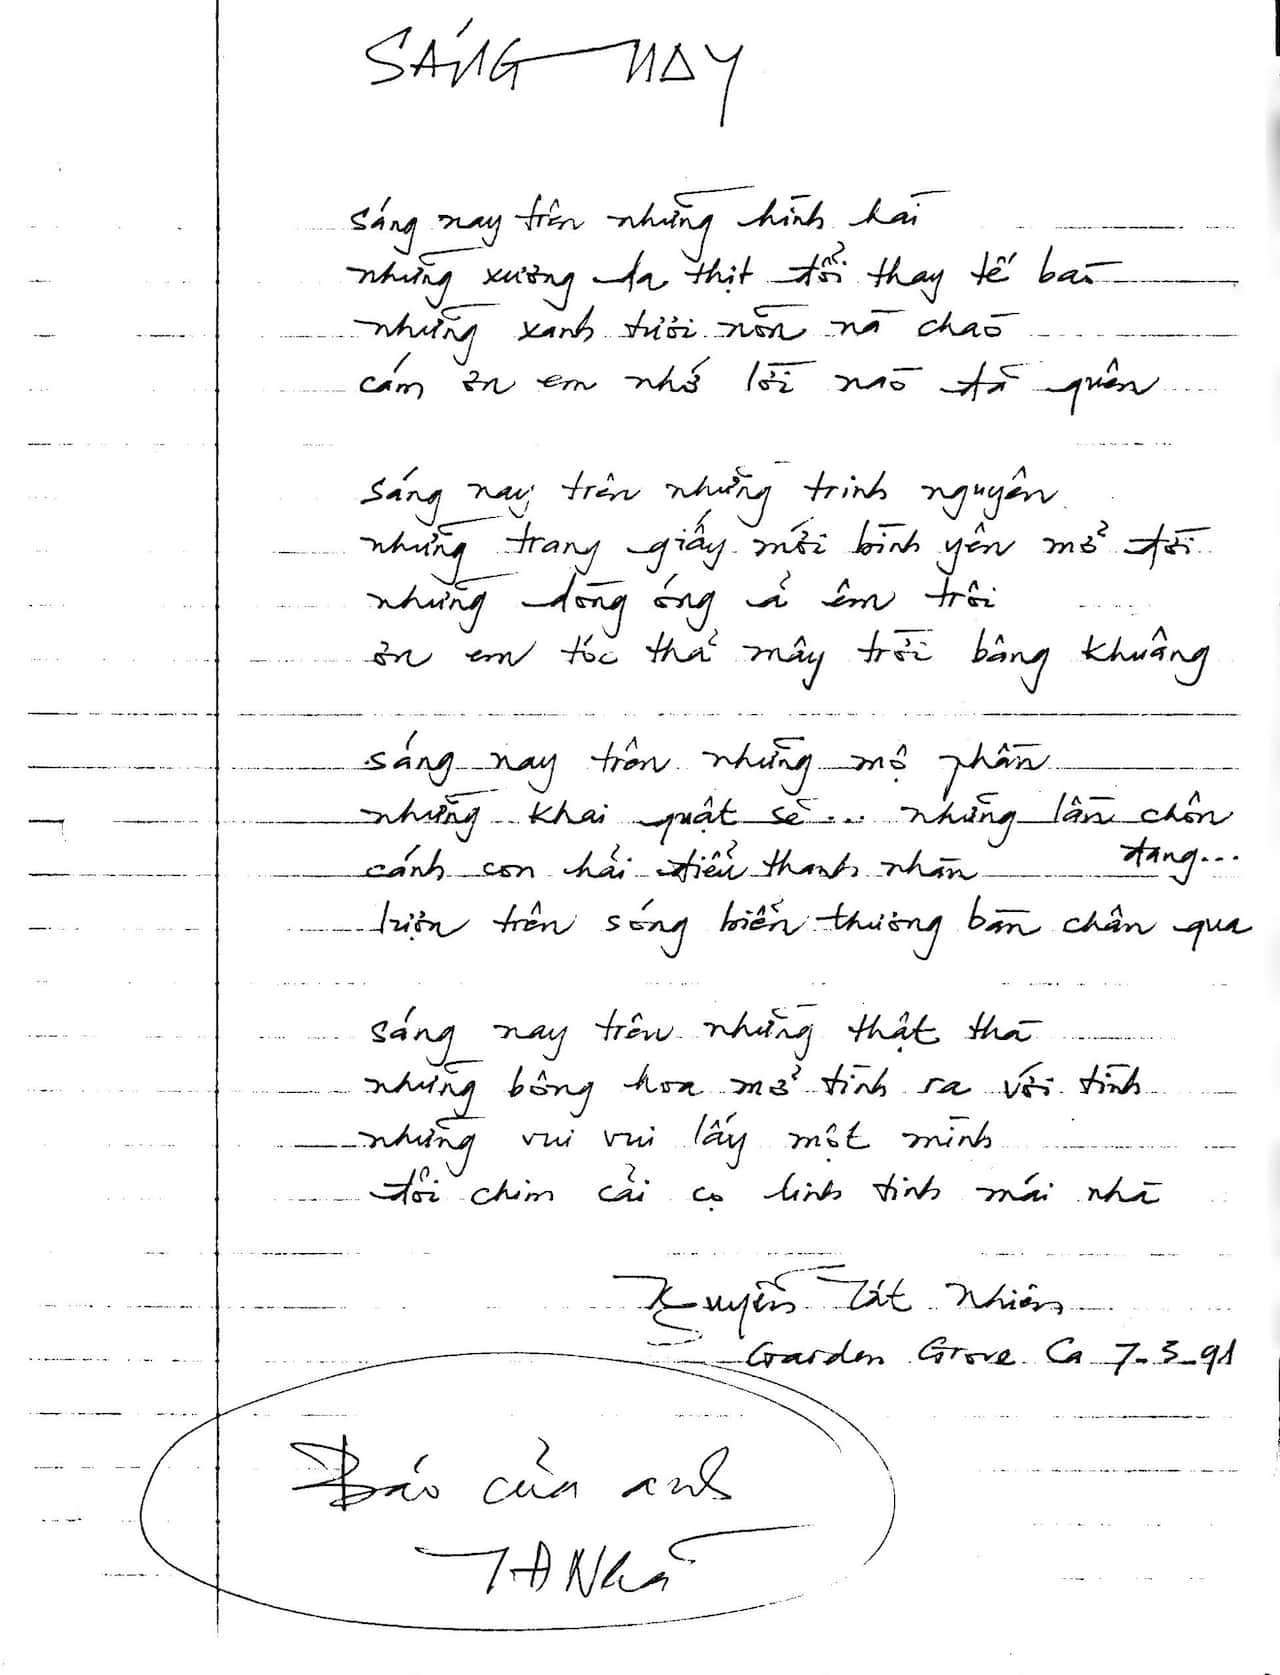 SÁNG NAY
sáng nay trên những hình hài
những xương da thịt đổi thay tế bào
những xanh tươi nõn nà chào
cám ơn em nhớ lời nào đã quên
sáng nay trên những trinh nguyên
những trang giấy mới bình yên mở đời
những dòng óng ả êm trôi
ơn em tóc thả mây trời bâng khuâng
sáng nay trên những mộ phần
những khai quật sẽ... những lần chôn
đang...
cánh con hải điểu thanh nhàn
lượn trên sóng biển thương bàn chân qua
sáng nay trên những thật thà
những bông hoa mở tình ra với tình
những vui vui lấy một mình
đôi chim cãi cọ linh tinh mái nhà
Nguyễn Tất Nhiên
Garden Grove Ca 7-3-91
Báo của anh